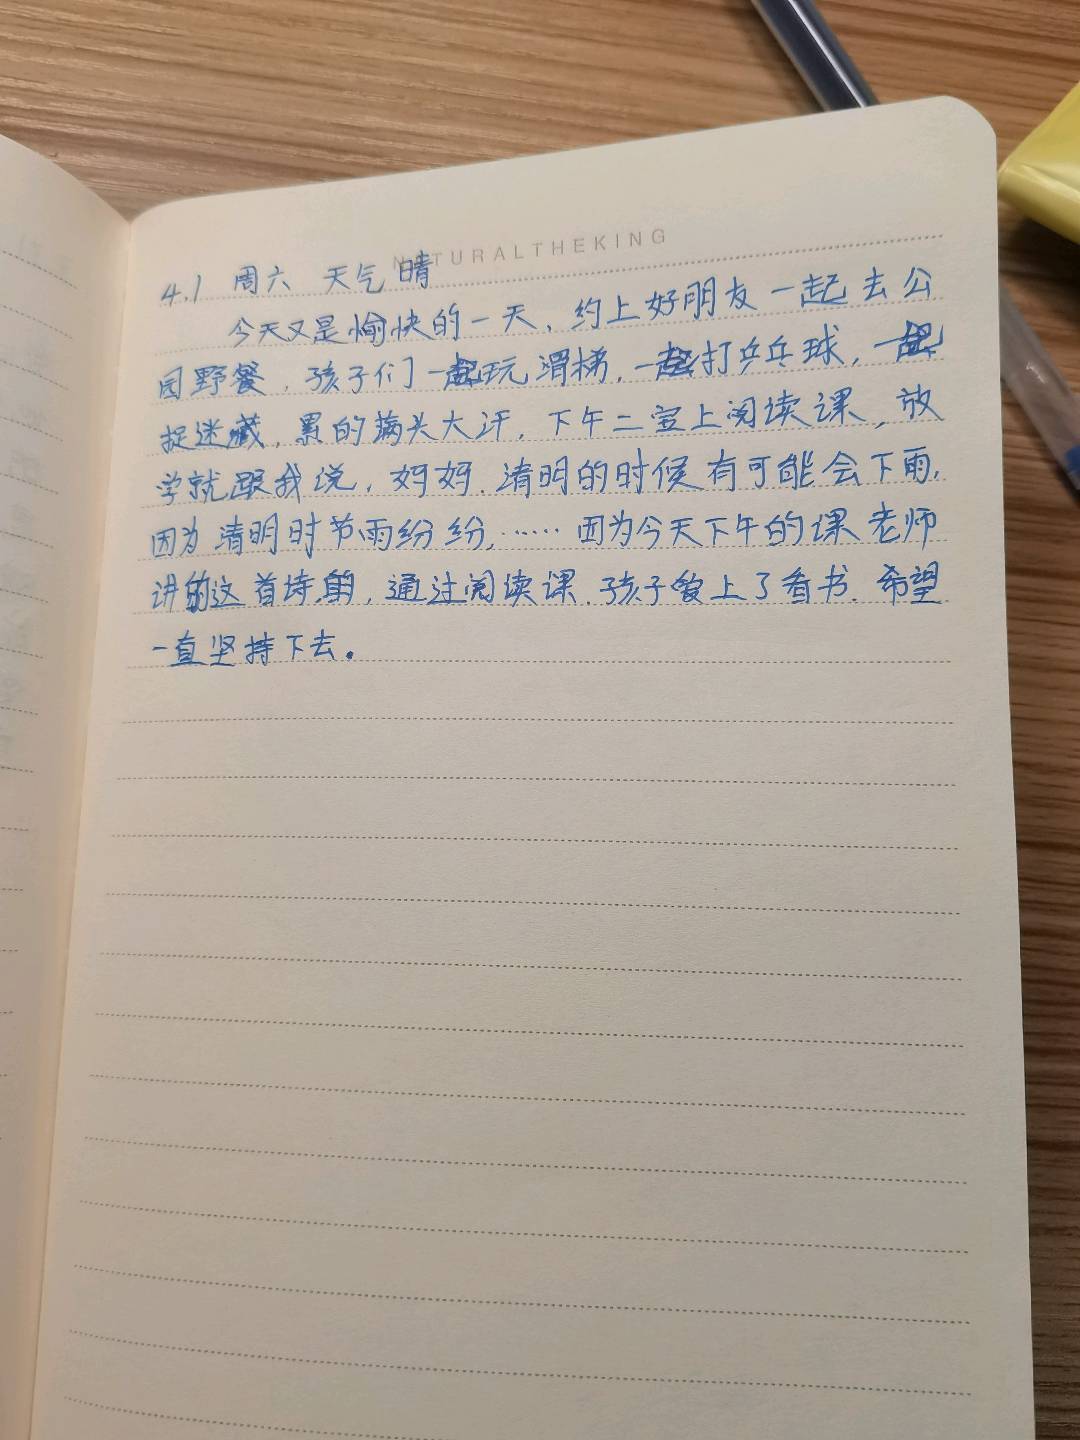 NATURALTHEKING
4.1 周六 天气晴
今天又是愉快的一天、约上好朋友一起去公
园野餐，孩子们一起玩滑梯，一起打乒乓球，一起
捉迷藏，累的满头大汗，下午二宝上阅读课，放
学就跟我说，妈妈，清明的时候有可能会下雨，
因为清明时节雨纷纷，……因为今天下午的课老师
讲的这首诗的，通过阅读课，孩子爱上了看书，希望
一直坚持下去。